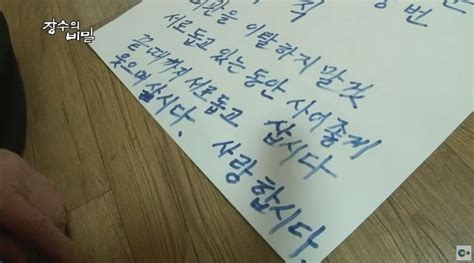 장수의
비밀
칙 번
이탈하지 말것
서로 돕고 있는 동안 사이좋게
끝데까지 서로돕고 삽시다
웃으며 삽시다. 사랑 합시다.